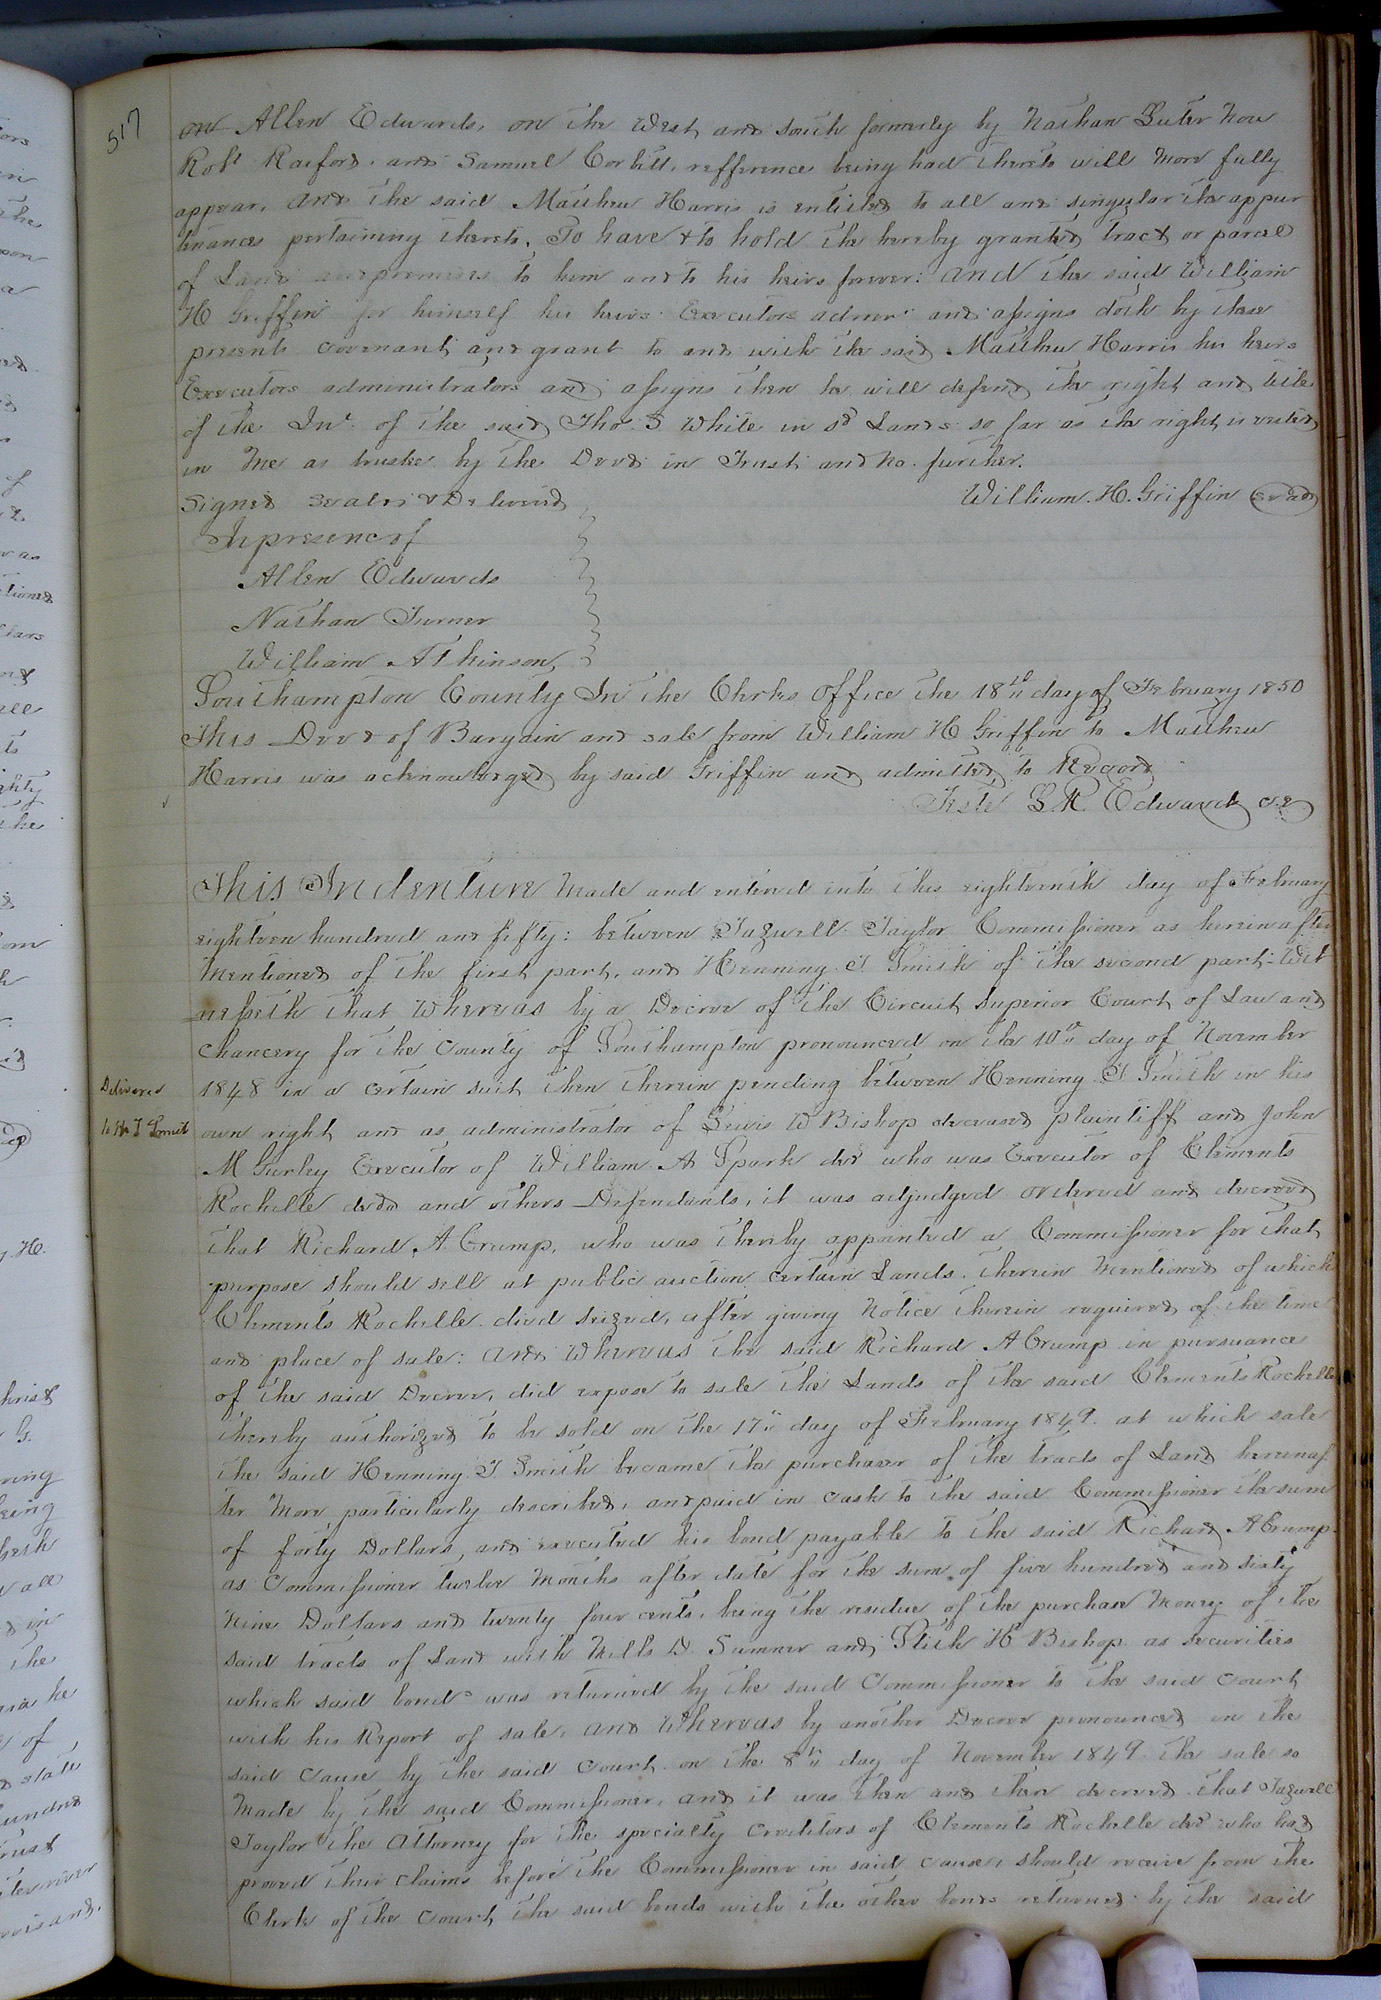 517
on Allen Edwards, on the West and South formerly by Nathan Luter Now
Robt Raiford, and Samuel Corbitt, refference being had thereto will more fully
appear. And the said Matthew Harris is entitled to all and singular the appur
tenances pertaining thereto, To have & to hold the hereby granted tract or parcel
of Land and premises to him and to his heirs forever: And the said William
H Griffin for himself his heirs Executors admors and assigns doth by these
presents covenant and grant to and with the said Matthew Harris his heirs
Executors administrators and assigns then he will defend the right and title
of the Int. of the said Tho. S White in sd Lands so far as the right is vested
in Me as trustee by the Deed in Trust and no further.
Signed Sealed & Delivered
William. H. Griffin Seal
In presence of
Allen Edwards
Nathan Turner
William Atkinson,
Southampton County In the Clerks Office the 18th day of February 1850
This Deed of Bargain and sale from William H Griffin to Matthew
Harris was acknowledged by said Griffin and admitted to Record
Teste L. R. Edwards
This Indenture Made and entered into this eighteenth day of February
eighteen hundred and fifty: between Tazwell Taylor Commissioner as hereinafter
Mentioned of the first part, and Henning T Smith of the second part: Wit
nesseth that Whereas by a Decree of the Circuit Superior Court of Law and
Chancery for the County of Southampton pronounced on the 10th day of November
1848 in a certain suit then therein pending between Henning T Smith in his
Delivered
to H T Smith
own right and as administrator of Lewis W Bishop deceased plaintiff and John
M Gurley Executor of William A Spark decd who was Executor of Clements
Rochelle decd and others Defendants, it was adjudged ordered and decreed
that Richard A Crump, who was thereby appointed a Commissioner for that
purpose should sell at public auction certain Lands therein Mentioned of which
Clements Rochelle died seized, after giving Notice therein required of the time
and place of sale: And Whereas the said Richard A Crump in pursuance
of the said Decree, did expose to sale the Lands of the said Clements Rochelle
thereby authorized to be sold on the 17th day of February 1849. at which sale
the said Henning T Smith became the purchaser of the tracts of Land hereinaf
ter More particularly described, and paid in cash to the said Commissioner the sum
of forty Dollars, and executed his bond payable to the said Richard A Crump
as Commissioner twelve Months after date for the sum of five hundred and sixty
Nine Dollars and twenty four cents, being the residue of the purchase Money of the
said tracts of Land with Mills D. Sumner and H Bishop as securities
which said bond was returned by the said Commissioner to the said Court
with his Report of sale, And Whereas by another Decree pronounced in the
said Cause by the said Court on the 8th day of November 1849 the sale so
Made by the said Commissioner, and it was then and there decreed that Tazwell
Taylor the Attorney for the specialty creditors of Clements Rochelle decd who had
proved their claims before the Commissioner in said cause, should receive from the
Clerk of the Court the said bonds with the other bonds returned by the said